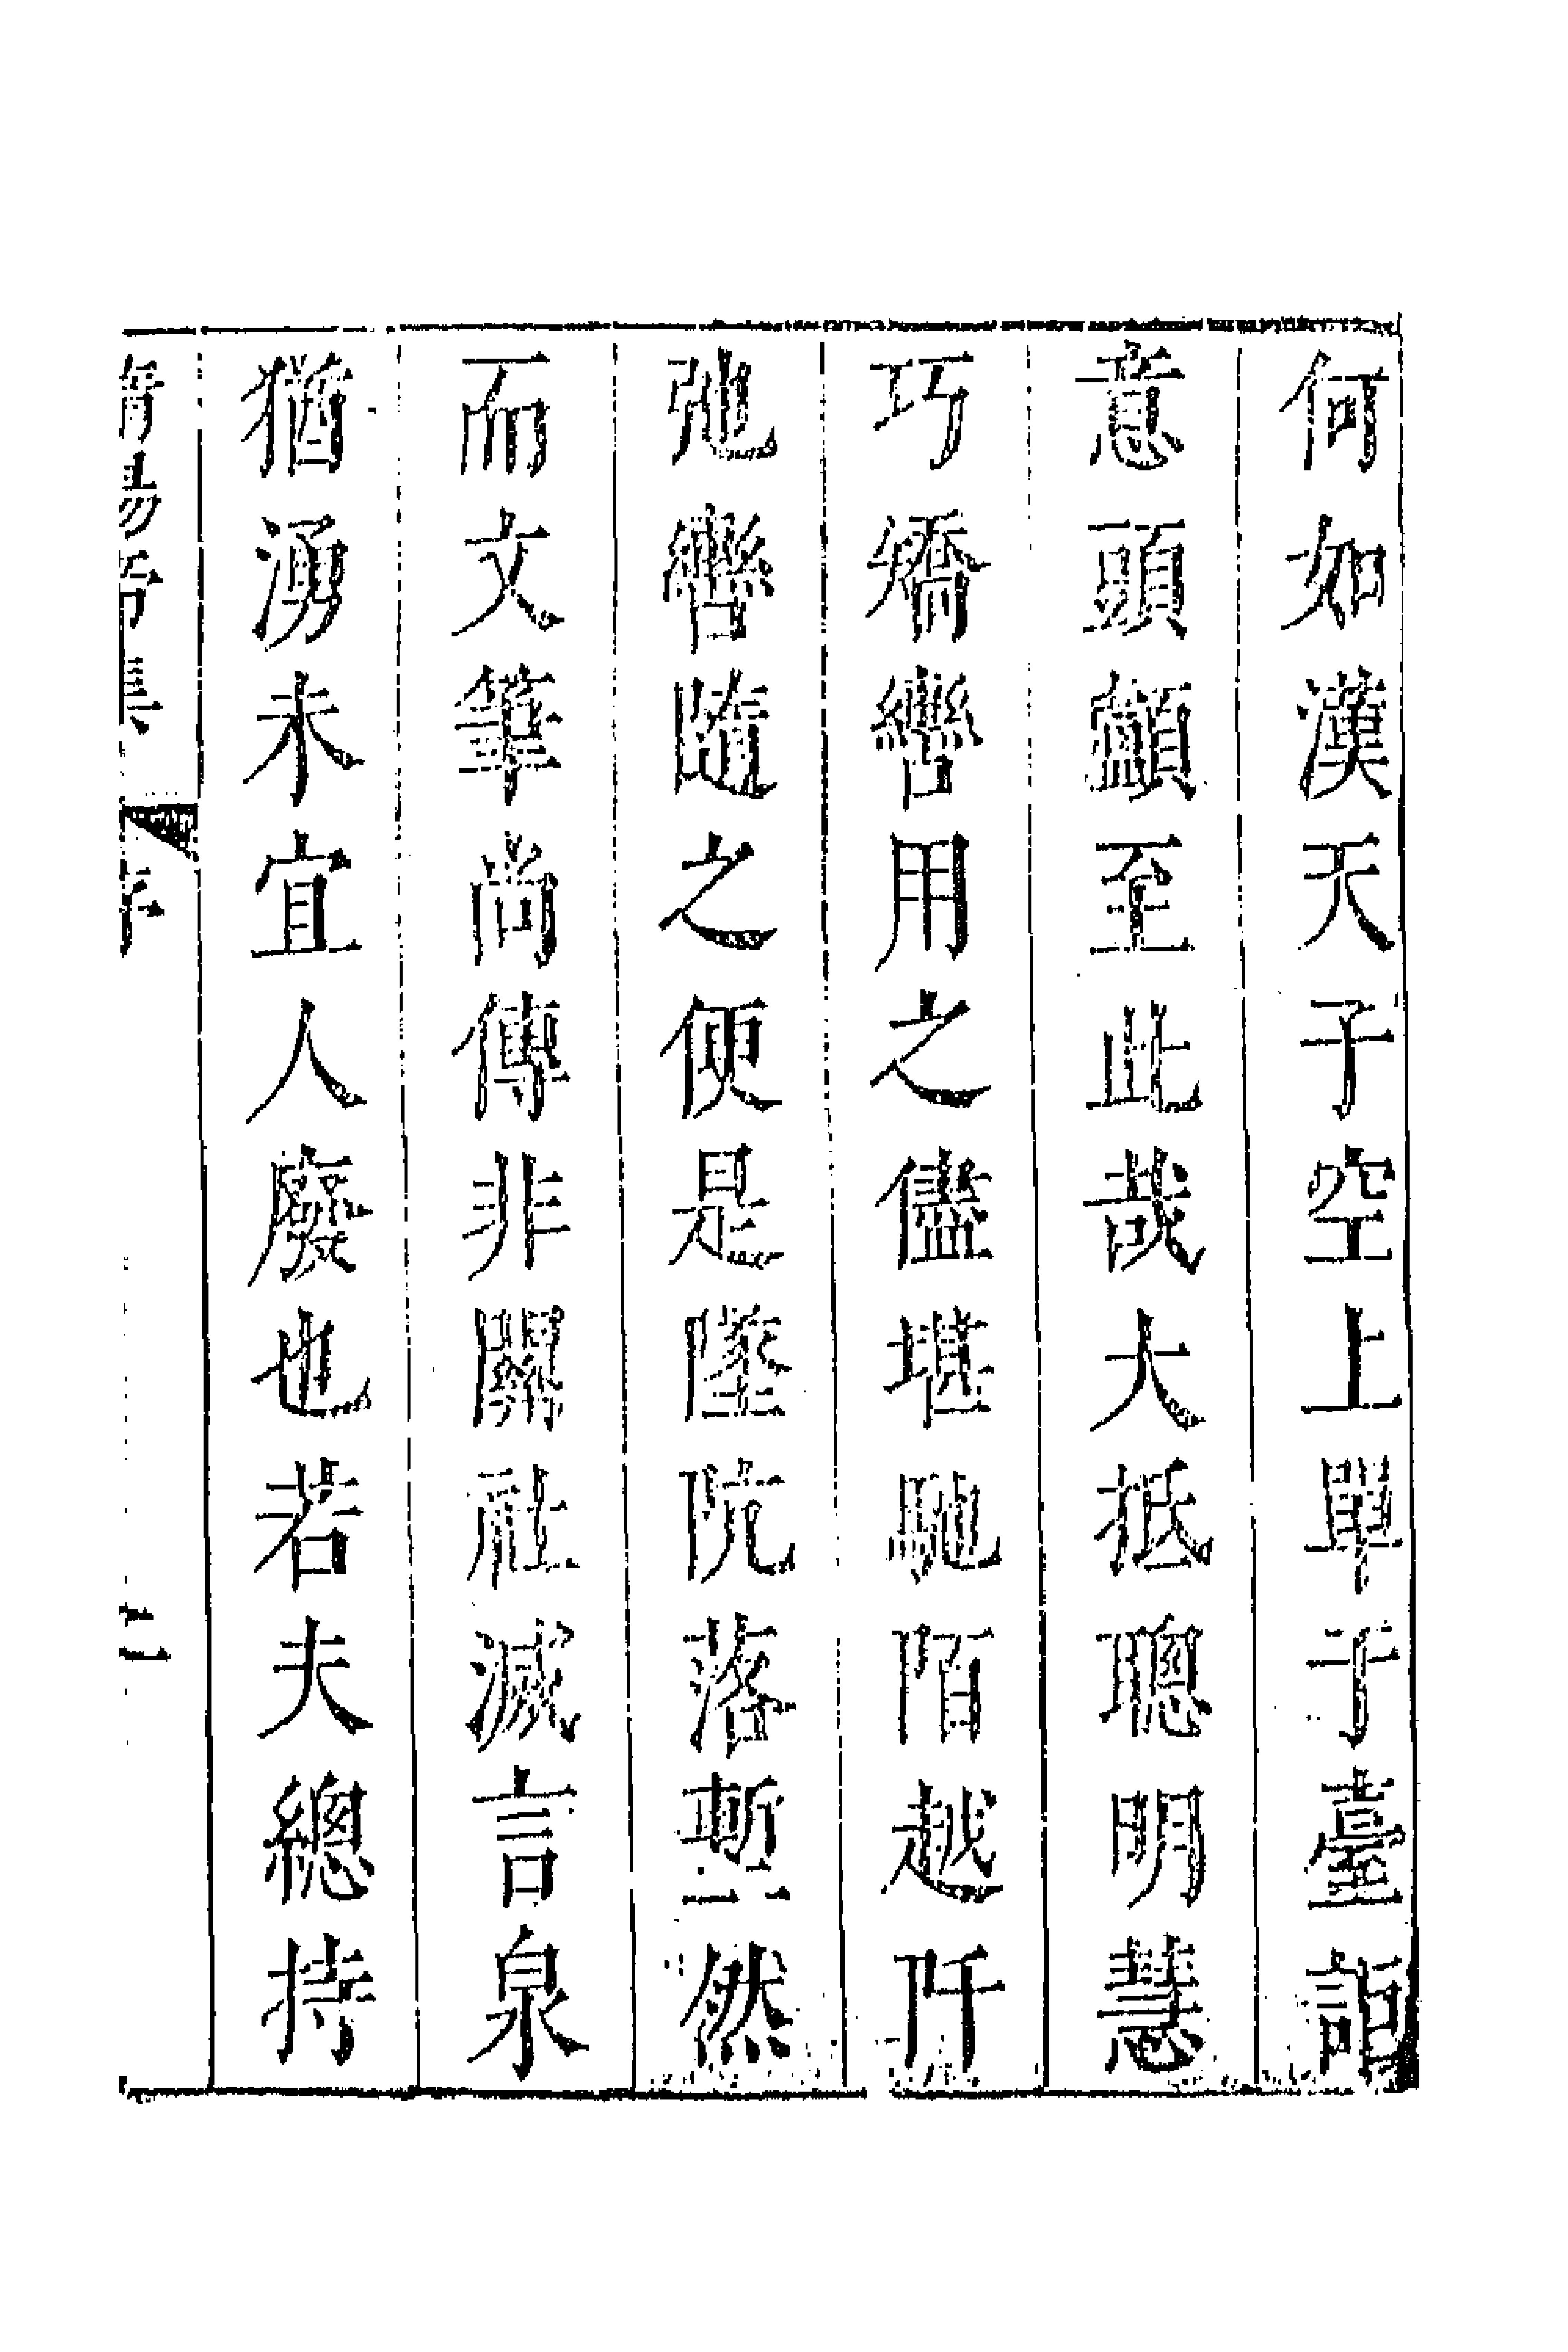 何如漢天子空上單于臺詎
意頭顱至此哉大抵聰明慧
巧矯轡用之儘堪馳陌越阡
弛轡隨之便是墜阬落塹然
而文筆尚傳非關社滅言泉
猶湧未宜人廢也若夫總持
隋煬帝集 序